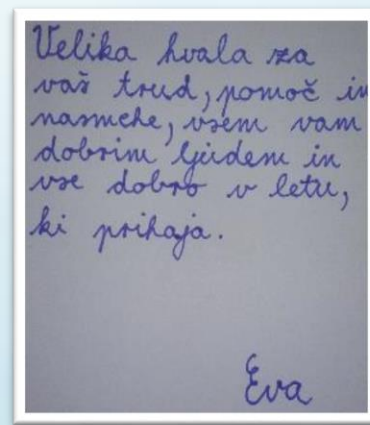 Velika hvala za
vaš trud, pomoč in
nasmehe, vsem vam
dobrim ljudem in
vse dobro v letu,
ki prihaja.
Eva